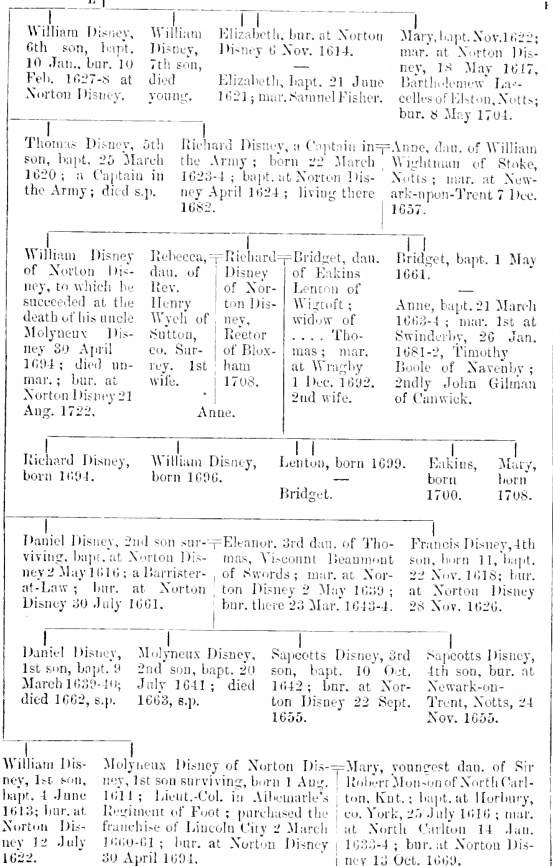 William Disney,
6th son, bapt.
10 Jan., bur. 10
Feb. 1627-8 at
Norton Disney.
William
Disney,
7th son,
died
young.
Elizabeth, bur. at Norton
Disney 6 Nov. 1614.
—
Elizabeth, bapt. 21 June
1621; mar. Samuel Fisher.
Mary, bapt. Nov. 1622;
mar. at Norton Dis-
ney, 18 May 1647,
Bartholemew Las-
celles of Elston, Notts;
bur. 8 May 1704.
Thomas Disney, 5th
son, bapt. 25 March
1620; a Captain in
the Army; died s.p.
Richard Disney, a Captain in
the Army; born 22 March
1623-4; bapt. at Norton Dis-
ney April 1624; living there
1682.
Anne, dau. of William
Wightman of Stoke,
Notts; mar. at New-
ark-upon-Trent 7 Dec.
1657.
William Disney
of Norton Dis-
ney, to which he
succeeded at the
death of his uncle
Molyneux Dis-
ney 30 April
1694; died un-
mar.; bur. at
Norton Disney 21
Aug. 1722.
Rebecca,
dau. of
Rev.
Henry
Wych of
Sutton,
co. Sur-
rey. 1st
wife.
Richard
Disney
of Nor-
ton Dis-
ney,
Rector
of Blox-
ham
1708.
Bridget, dau.
of Eakins
Lenton of
Wigtoft;
widow of
. . . . Tho-
mas; mar.
at Wragby
1 Dec. 1692.
2nd wife.
Bridget, bapt. 1 May
1661.
—
Anne, bapt. 21 March
1663-4; mar. 1st at
Swinderby, 26 Jan.
1681-2, Timothy
Boole of Navenby;
2ndly John Gilman
of Canwick.
Anne.
Richard Disney,
born 1694.
William Disney,
born 1696.
Lenton, born 1699.
—
Bridget.
Eakins,
born
1700.
Mary,
born
1708.
Daniel Disney, 2nd son sur-
viving, bapt. at Norton Dis-
ney 2 May 1616; a Barrister-
at-Law; bur. at Norton
Disney 30 July 1661.
Eleanor, 3rd dau. of Tho-
mas, Viscount Beaumont
of Swords; mar. at Nor-
ton Disney 2 May 1639;
bur. there 23 Mar. 1643-4.
Francis Disney, 4th
son, born 11, bapt.
22 Nov. 1618; bur.
at Norton Disney
28 Nov. 1626.
Daniel Disney,
1st son, bapt. 9
March 1639-40;
died 1662, s.p.
Molyneux Disney,
2nd son, bapt. 20
July 1641; died
1663, s.p.
Sapcotts Disney, 3rd
son, bapt. 10 Oct.
1642; bur. at Nor-
ton Disney 22 Sept.
1655.
Sapcotts Disney,
4th son, bur. at
Newark-on-
Trent, Notts, 24
Nov. 1655.
William Dis-
ney, 1st son,
bapt. 4 June
1613; bur. at
Norton Dis-
ney 12 July
1622.
Molyneux Disney of Norton Dis-
ney, 1st son surviving, born 1 Aug.
1614; Lieut.-Col. in Albemarle's
Regiment of Foot; purchased the
franchise of Lincoln City 2 March
1660-61; bur. at Norton Disney
30 April 1694.
Mary, youngest dau. of Sir
Robert Monson of North Carl-
ton, Knt.; bapt. at Horbury,
co. York, 25 July 1616; mar.
at North Carlton 14 Jan.
1633-4; bur. at Norton Dis-
ney 13 Oct. 1669.